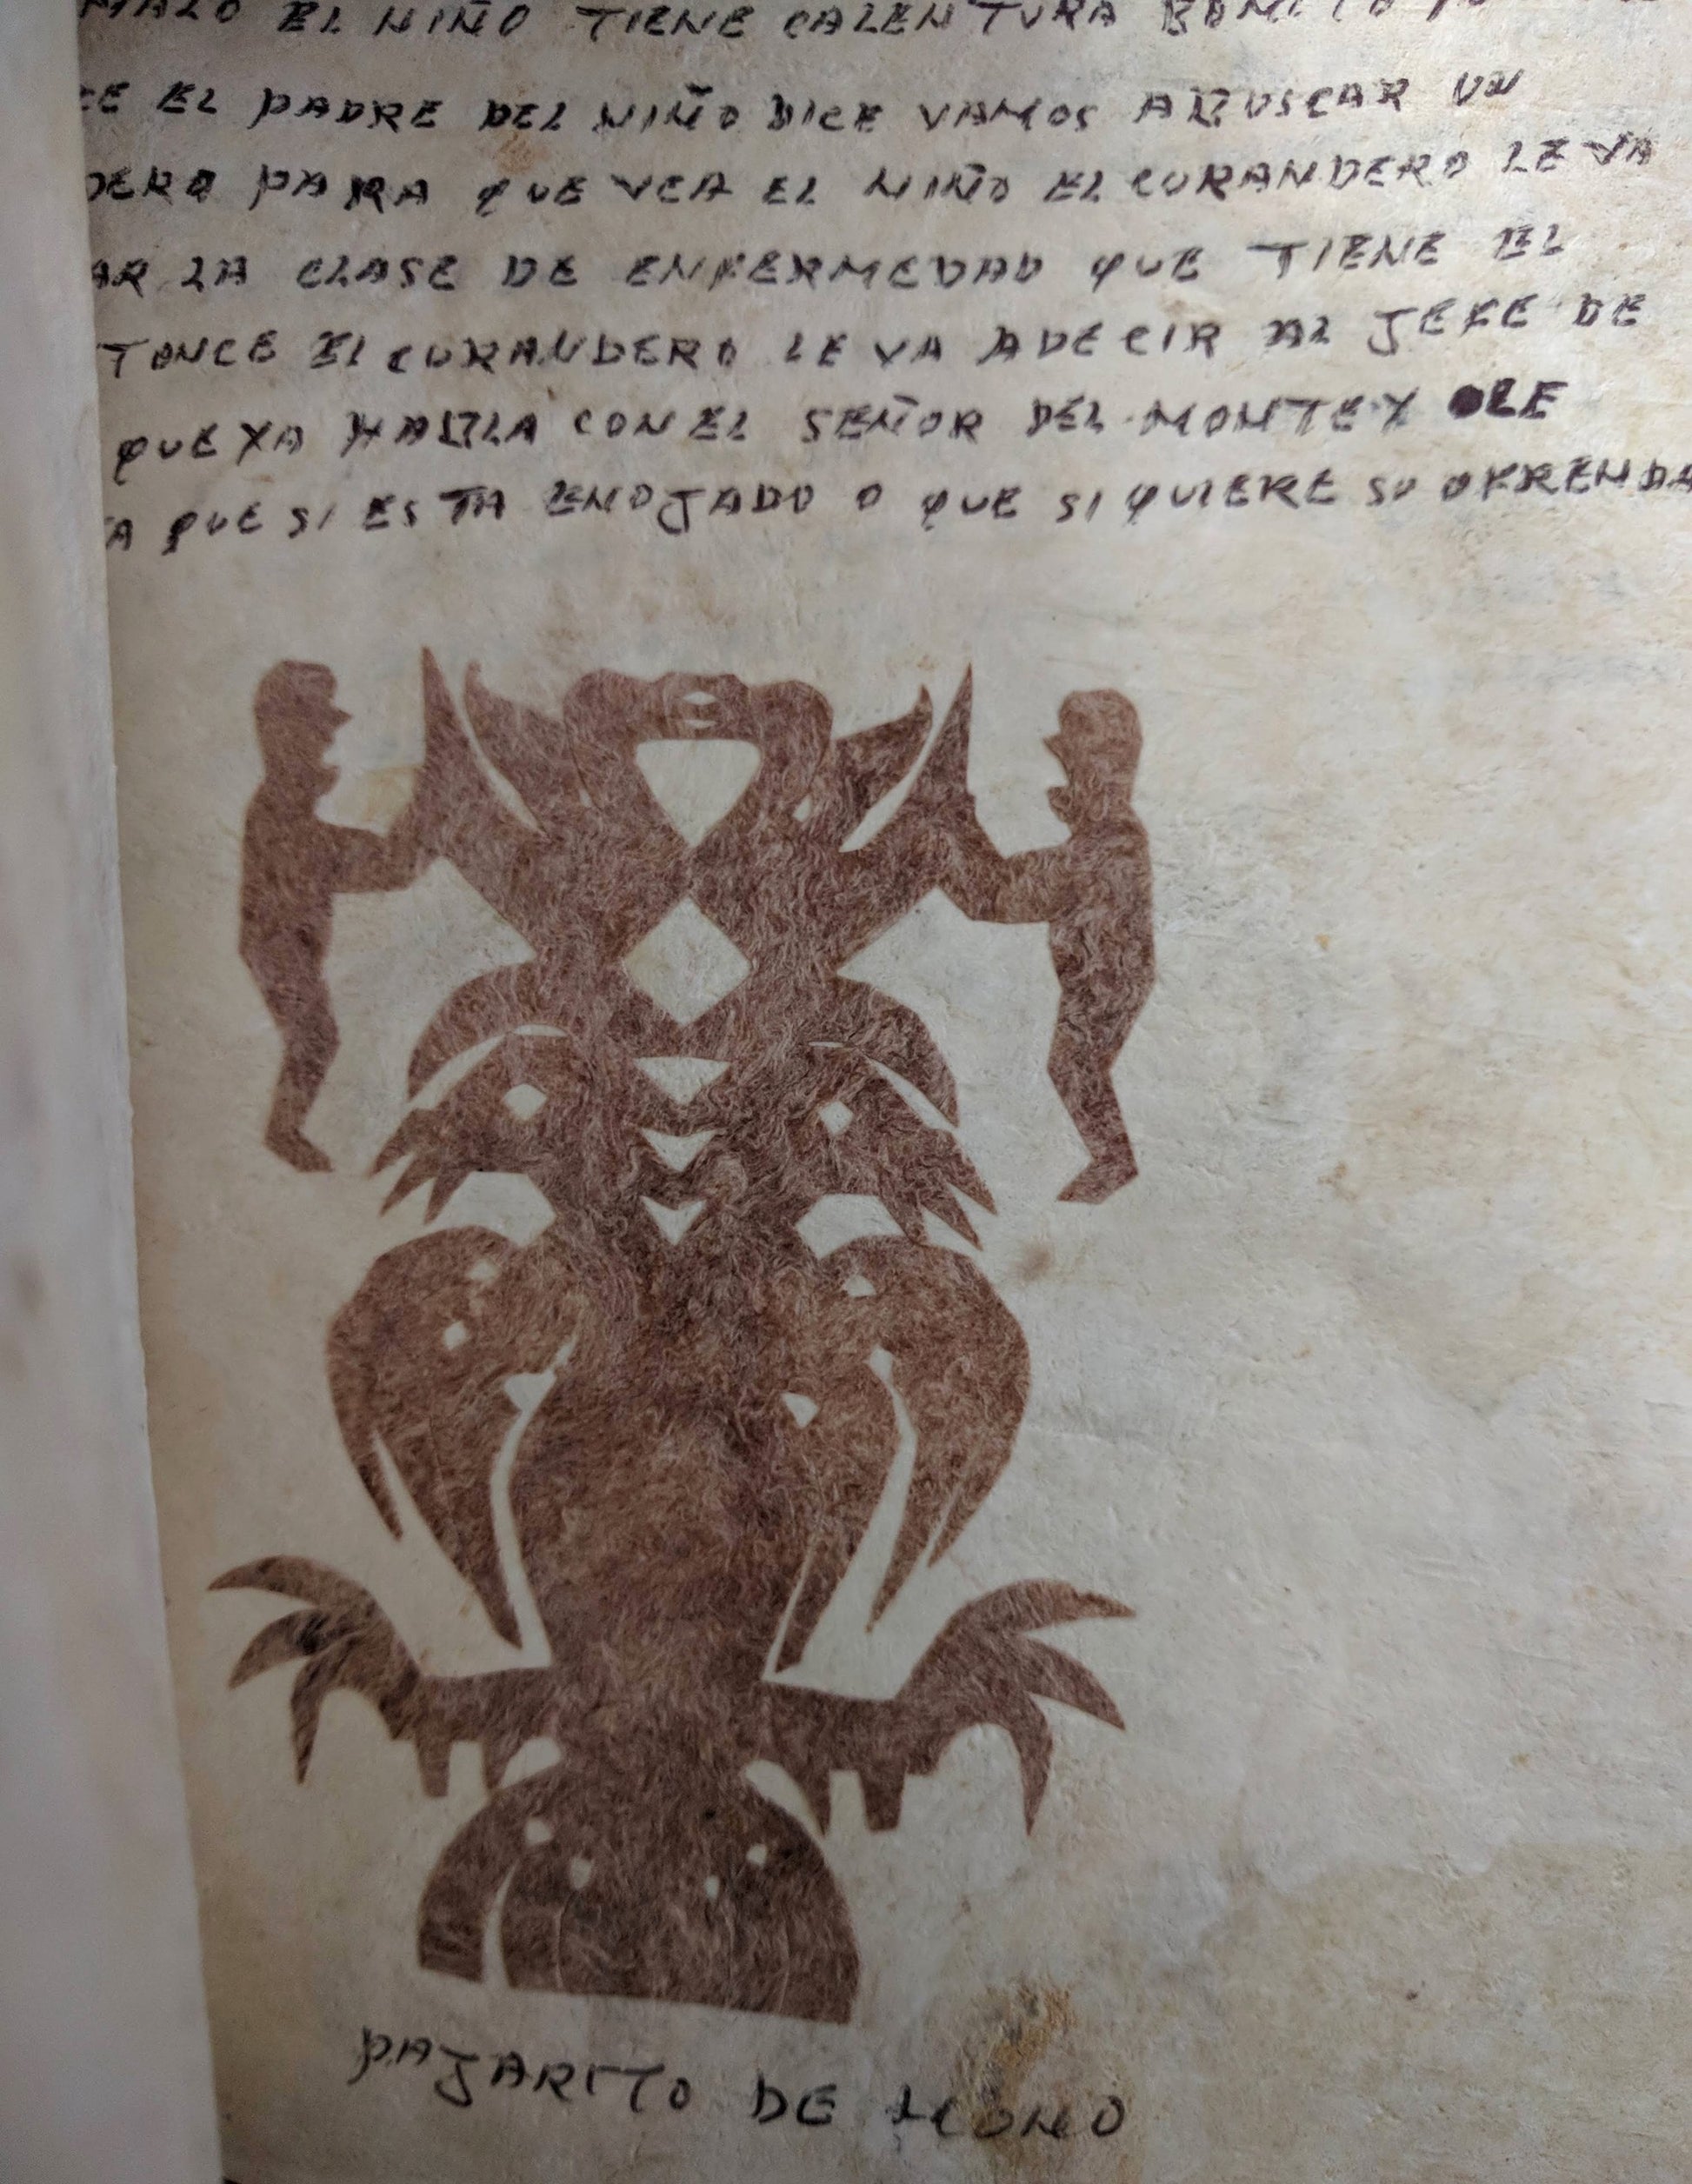 MALO EL NIÑO TIENE CALENTURA
CE EL PADRE DEL NIÑO DICE VAMOS ABUSCAR UN
DERO PARA QUE VEA EL NIÑO EL CURANDERO LE VA
AR LA CLASE DE ENFERMEDAD QUE TIENE EL
TONCE EL CURANDERO LE VA ADECIR AL JEFE DE
QUE YA HABLA CON EL SEÑOR DEL MONTE Y LE
A QUE SI ESTA ENOJADO O QUE SI QUIERE SU OFRENDA
PAJARITO DE MONO